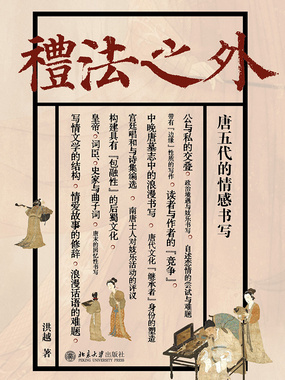 禮法之外
唐五代的情感书写
公与私的交叠。政治境遇与娱乐书写。自述恋情的尝试与难题
带有「边缘」性质的写作。读者与作者的「竞争」。
中晚唐墓志中的浪漫书写。唐代文化「继承者」身份的塑造
宫廷唱和与诗集编选。南唐士人对娱乐活动的评议
构建具有「包融性」的后蜀文化。
皇帝、词臣、史家与曲子词。唐末的回忆性书写
写情文学的结构。情爱故事的修辞。浪漫话语的难题。
洪越 著
北京大学出版社